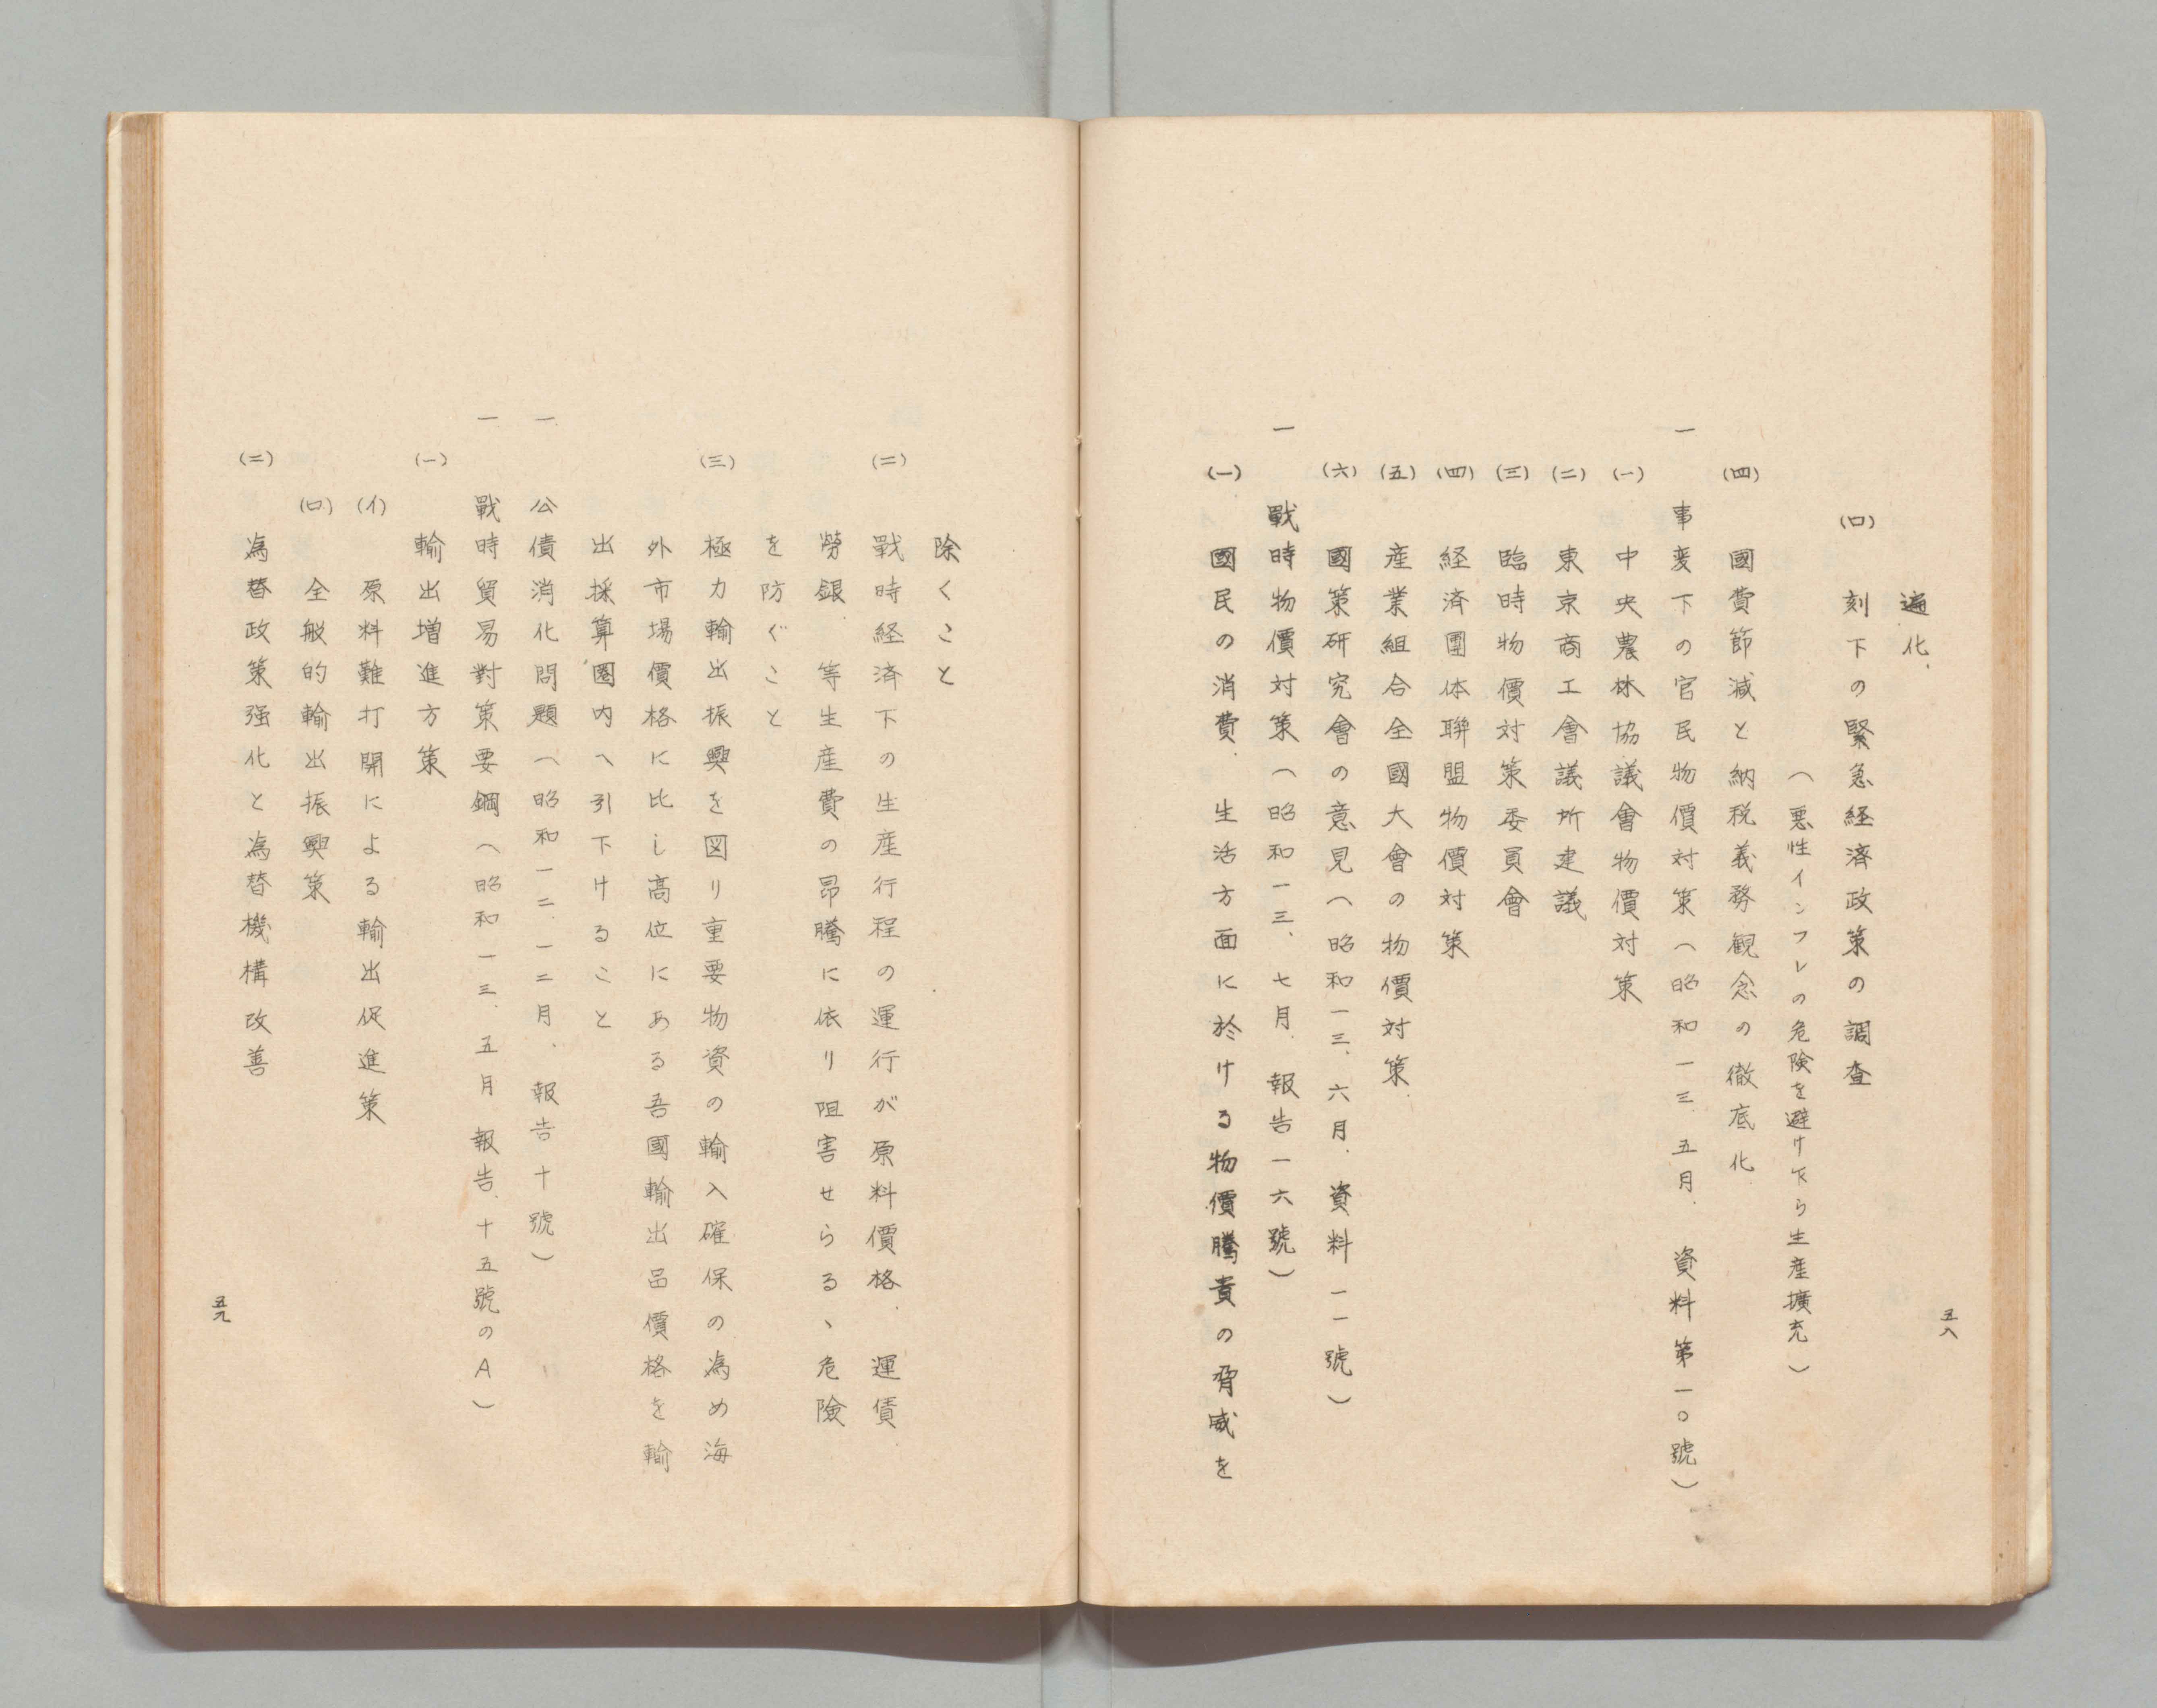 遍化、
(ロ) 刻下の緊急経済政策の調査
（悪性インフレの危険を避け下ら生産擴充）
(四) 國費節減と納税義務観念の徹底化
一 事変下の官民物價対策（昭和一三 五月． 資料第一〇號）
(一) 中央農林協議會物價対策
(二) 東京商工會議所建議
(三) 臨時物價対策委員會
(四) 経済團体聯盟物價対策
(五) 産業組合全國大會の物價対策
(六) 國策研究會の意見（昭和一三、六月．資料一一號）
一 戰時物價対策（昭和一三、七月．報告一六號）
(一) 國民の消費．生活方面に於ける物價騰貴の脅威を
五八
除くこと
(二) 戰時経済下の生産行程の運行が原料價格．運賃
勞銀．等生産費の昂騰に依り阻害せらるゝ危險
を防ぐこと
(三) 極力輸出振興を図り重要物資の輸入確保の為め海
外市場價格に比し高位にある吾國輸出品價格を輸
出採算圏内へ引下けること
一 公債消化問題（昭和一二．一二月．報告十號）
一 戰時貿易對策要鋼（昭和一三．五月 報告．十五號のA）
(一) 輸出増進方策
(イ) 原料難打開による輸出促進策
(ロ) 全般的輸出振興策
(二) 為替政策强化と為替機構改善
五九